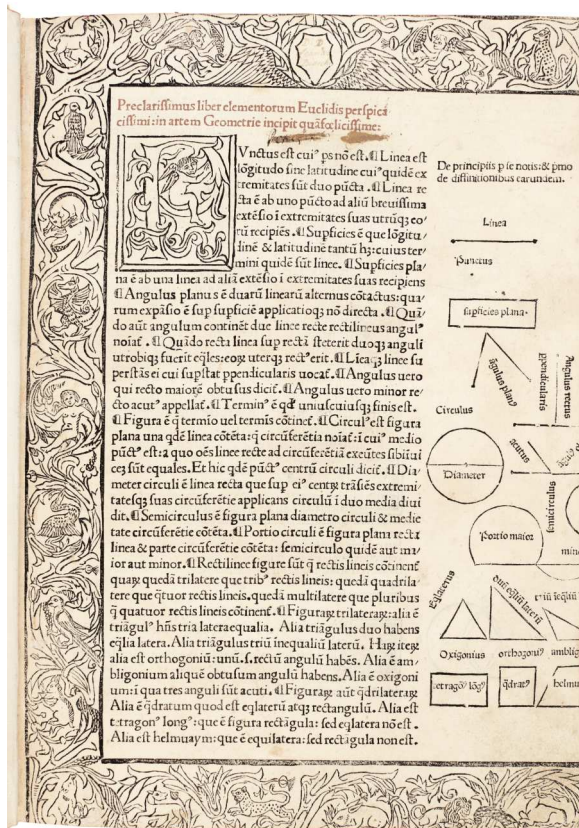 Preclarissimus liber elementorum Euclidis perspica
cissimi: in artem Geometrie incipit quāfœlicissime:
Vnctus est cuiꝰ ps nō est. ¶ Linea est
lōgitudo sine latitudine cuiꝰ quidē ex
tremitates sūt duo pūcta. ¶ Linea re
cta ē ab uno pūcto ad aliū breuissima
extēsio ī extremitates suas utrūqꝫ eo⸗
rū recipiēs. ¶ Supficies ē que lōgitu⸗
dinē & latitudinē tantū hꝫ: cuius ter⸗
mini quidē sūt linee. ¶ Supficies pla⸗
na ē ab una linea ad aliā extēsio ī extremitates suas recipiens
¶ Angulus planus ē duarū linearū alternus cōtactus: qua⸗
rum expāsio ē sup supficiē applicatioqꝫ nō directa. ¶ Quā⸗
do aūt angulum continēt due linee recte rectilineus angulꝰ
noiat̄. ¶ Quādo recta linea sup rectā steterit duoqꝫ anguli
utrobiqꝫ fuerīt eq̄les: eoꝝ uterqꝫ rectꝰ erit. ¶ Līeaqꝫ linee su
perstās ei cui supstat ppendicularis uocat̄. ¶ Angulus uero
qui recto maior ē obtusus dicit̄. ¶ Angulus uero minor re⸗
cto acutꝰ appellat̄. ¶ Terminꝰ ē qd̄ uniuscuiusqꝫ finis est.
¶ Figura ē q̄ termīo uel termīs cōtinet̄. ¶ Circulꝰ est figura
plana una qdē linea cōtēta: q̄ circūferētia noiat̄: ī cuiꝰ medio
pūctꝰ est: a quo oēs linee recte ad circūferētiā exeūtes sibiīui
ceꝫ sūt equales. Et hic qdē pūctꝰ centrū circuli dicit̄. ¶ Dia⸗
meter circuli ē linea recta que sup eiꝰ centꝝ trāsiēs extremi⸗
tatesqꝫ suas circūferētie applicans circulū ī duo media diui
dit. ¶ Semicirculus ē figura plana diametro circuli & medie
tate circūferētie cōtēta. ¶ Portio circuli ē figura plana recta
linea & parte circūferētie cōtēta: semicirculo quidē aut ma⸗
ior aut minor. ¶ Rectilinee figure sūt q̄ rectis lineis cōtinent̄
quaꝝ quedā trilatere que tribꝰ rectis lineis: quedā quadrila⸗
tere que q̄tuor rectis lineis. quedā multilatere que pluribus
q̄ quatuor rectis lineis cōtinent̄. ¶ Figuraꝝ trilateraꝝ: alia ē
triāgulꝰ hn̄s tria latera equalia. Alia triāgulus duo habens
eq̄lia latera. Alia triāgulus triū inequaliū laterū. Haꝝ iteꝝ
alia est orthogoniū: unū. s. rectū angulū habēs. Alia ē am⸗
bligonium aliquē obtusum angulū habens. Alia ē oxigoni
um: ī qua tres anguli sūt acuti. ¶ Figuraꝝ aūt q̄drilateraꝝ
Alia ē q̄dratum quod est eqlaterū atqꝫ rectangulū. Alia est
tetragonꝰ longꝰ: que ē figura rectāgula: sed eqlatera nō est.
Alia est helmuaym: que ē equilatera: sed rectāgula non est.
De principiis p se notis: & pmo
de diffinitionibus earundem.
Linea
Punctus
supficies plana.
āgulus planꝰ
ppendicularis
Angulus rectus
Circulus
acutus
Diameter
semicirculus
Portio maior
Eqlaterus
duū eq̄liū laterū
Oxigonius
orthogoniꝰ
tetragōꝰ lōgꝰ
q̄dratꝰ